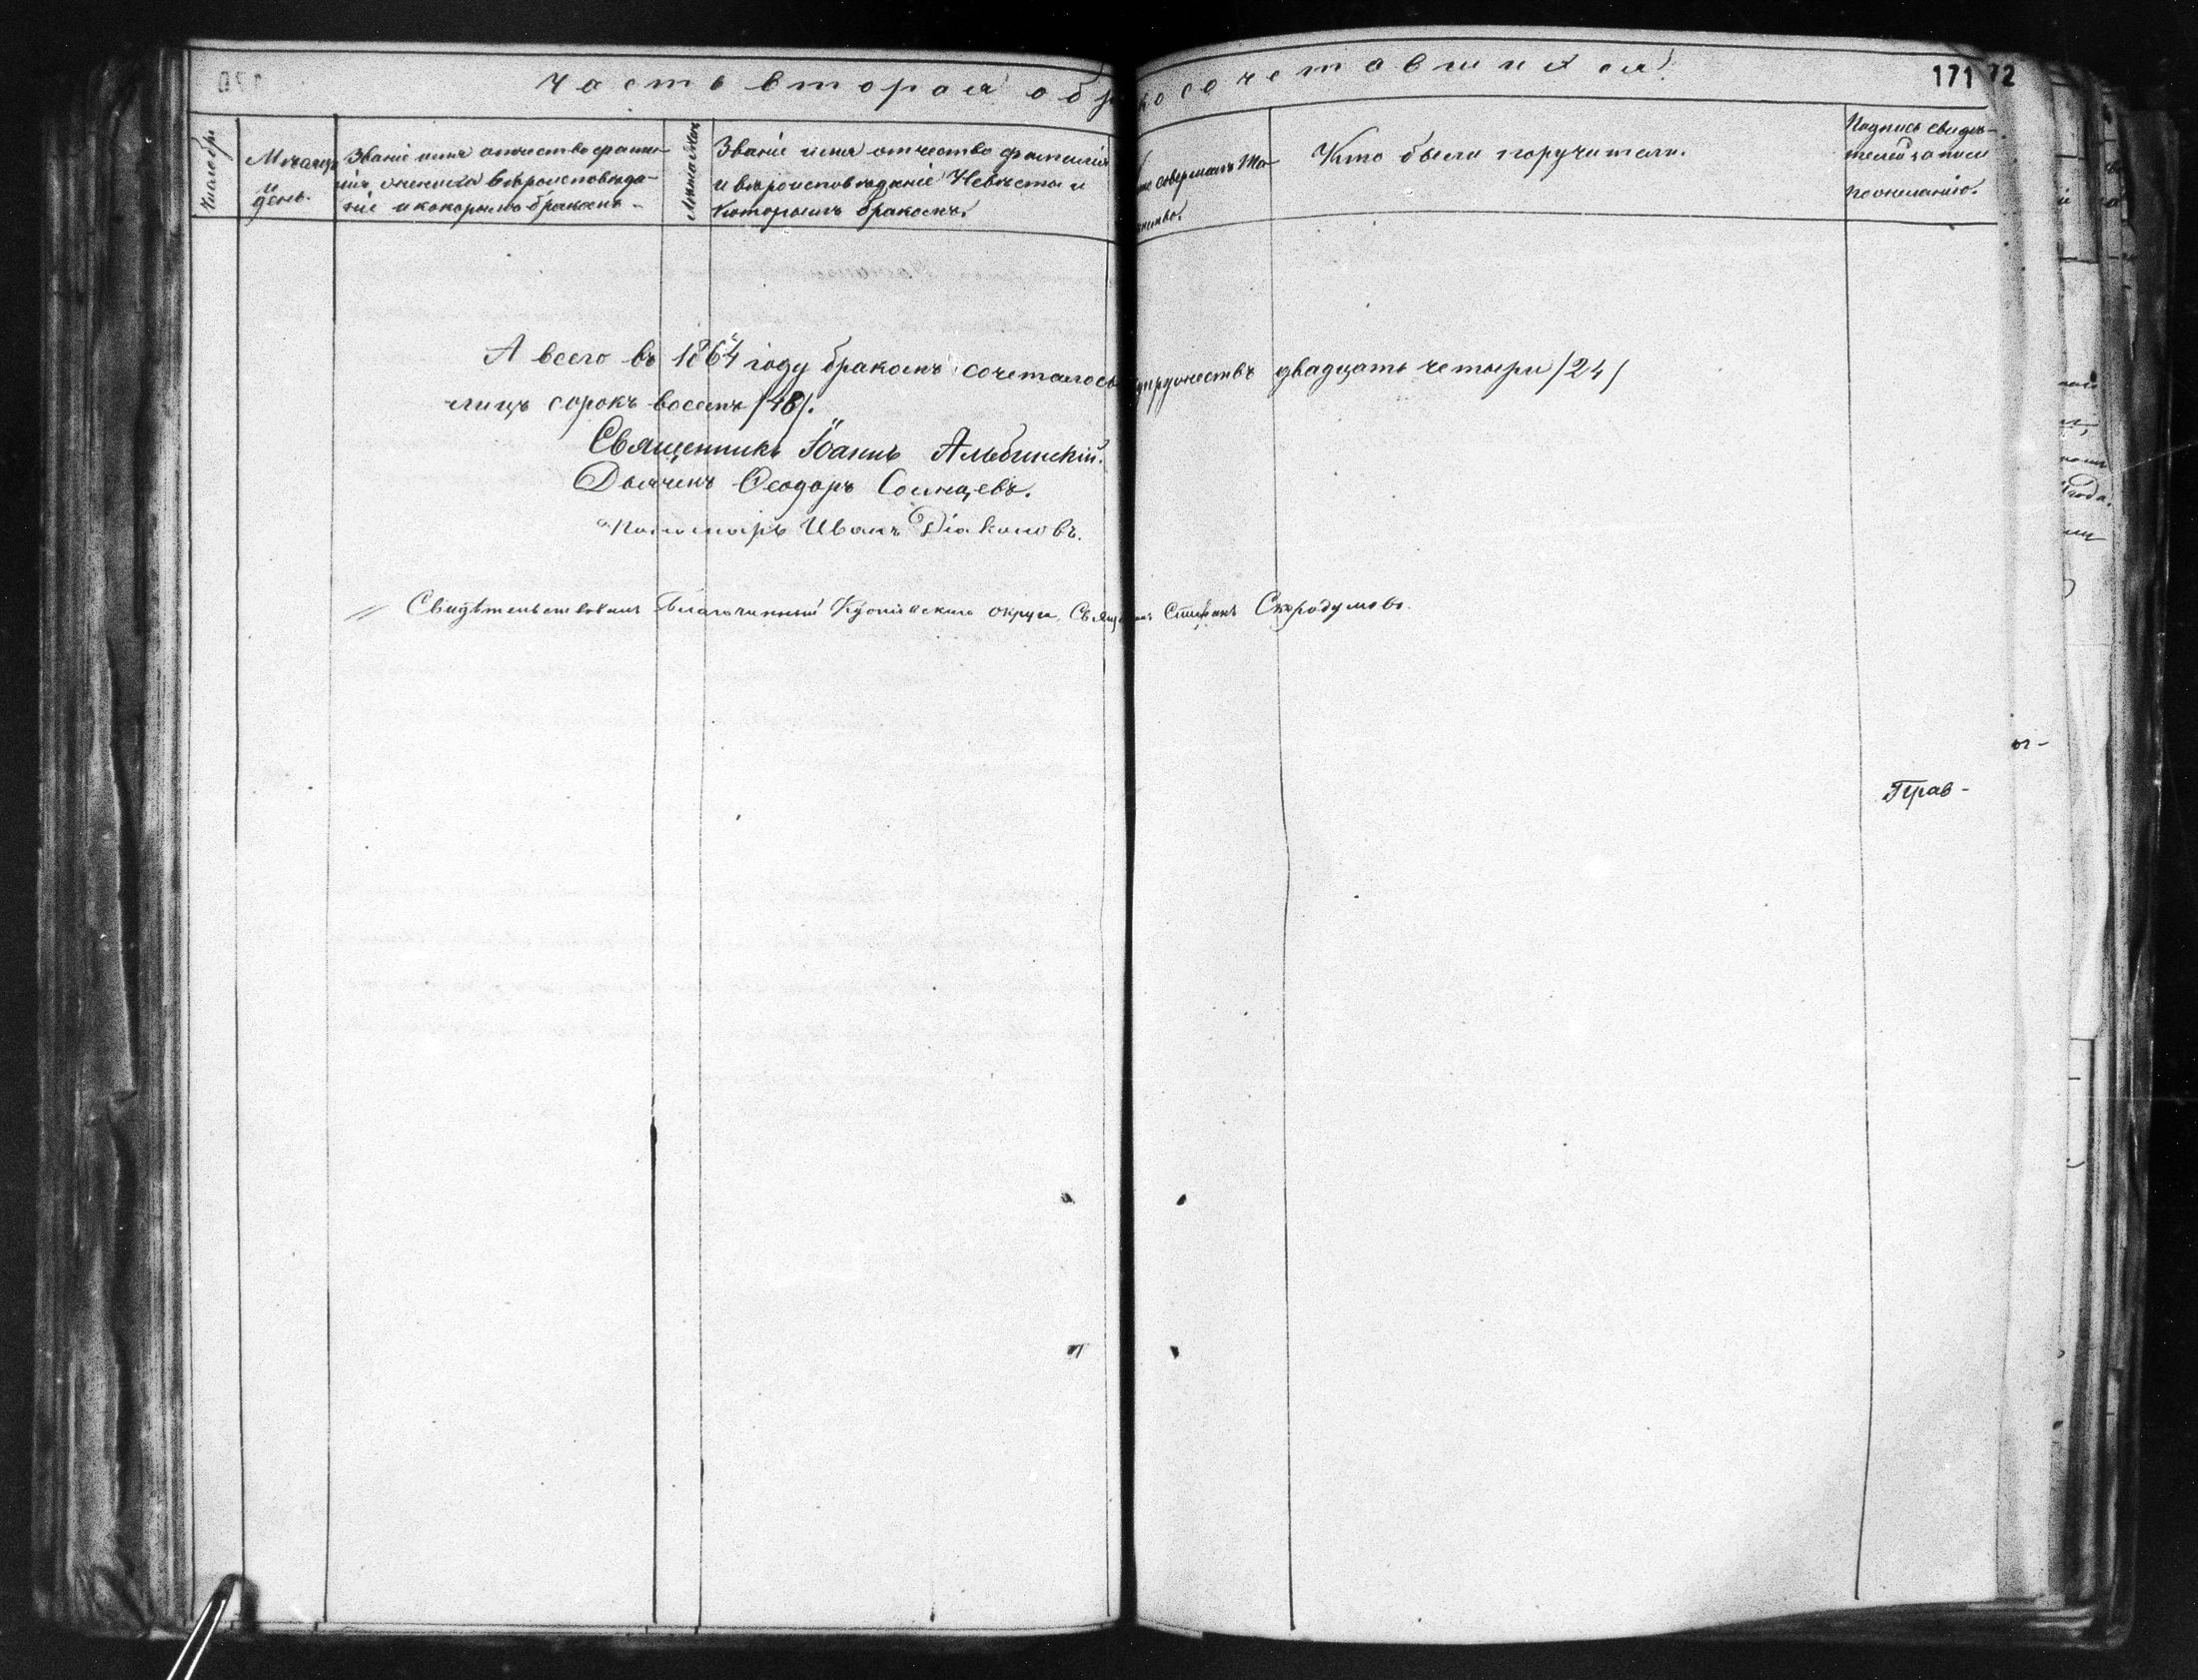 Часть вторая о бракосочетавшихся.
171 72
Мѣсяцъ и день.
Званіе имя отчество фамилія жениха вѣроисповѣданіе и которымъ бракомъ
Званіе имя отчество фамилія
и вѣроисповѣданіе Невѣсты и
которымъ бракомъ.
Кто совершалъ Таинство.
Кто были поручители.
Подпись свидѣтелей записи по желанію.
А всего въ 1864 году бракомъ сочеталось супружествъ двадцать четыре /24/
лицъ сорокъ восемь /48/.
Священникъ Іоаннъ Альбинскій.
Дьячекъ Ѳеодоръ Солнцевъ.
Пономарь Иванъ Діаконовъ.
Свидѣтельствовалъ Благочинный округа Священникъ Стефанъ Скородумовъ.